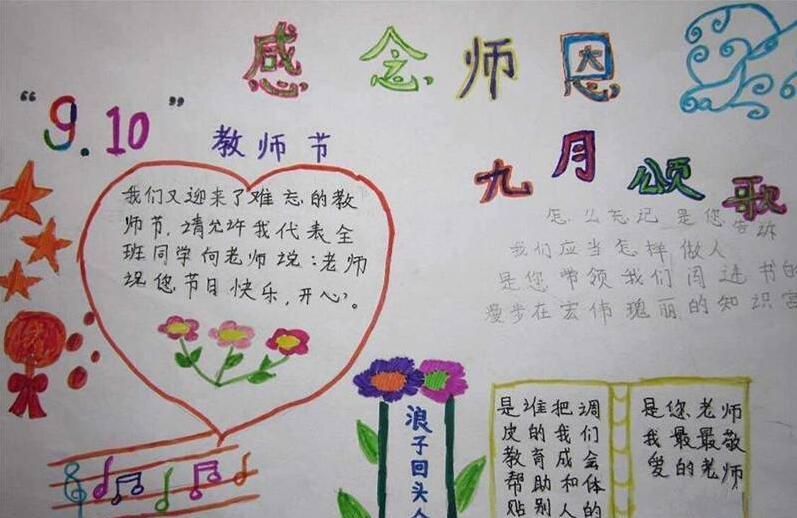 感念师恩
“9.10”
教师节
九月颂歌
我们又迎来了难忘的教
师节，请允许我代表全
班同学向老师说：老师
祝您节日快乐，开心。
怎么忘记是您告诉
我们应当怎样做人
是您带领我们闯进书的
漫步在宏伟瑰丽的知识宫
浪子回头
是谁把调
皮的我们
教育成会
帮助和体
贴别人的
是您老师
我最最敬
爱的老师